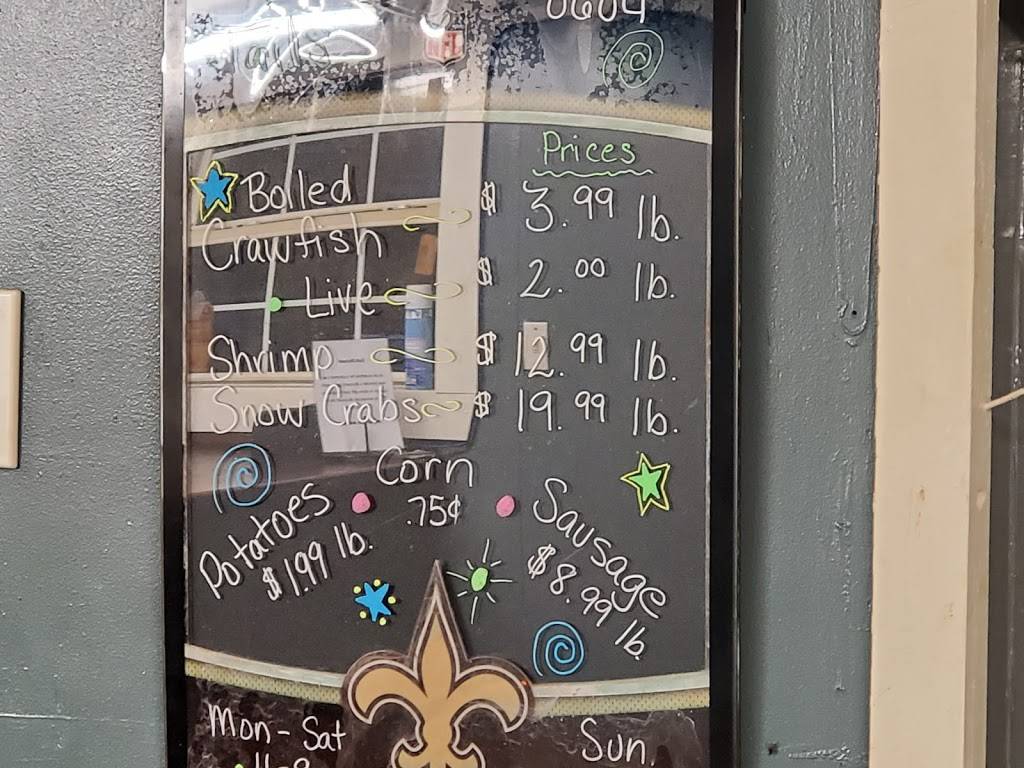 Tails
0604
NFL
Prices
Boiled Crawfish $ 3.99 lb.
Live $ 2.00 lb.
Shrimp $ 12.99 lb.
Snow Crabs $ 19.99 lb.
Corn
.75¢
Potatoes
$1.99 lb.
Sausage
$8.99 lb.
Mon - Sat
Sun.